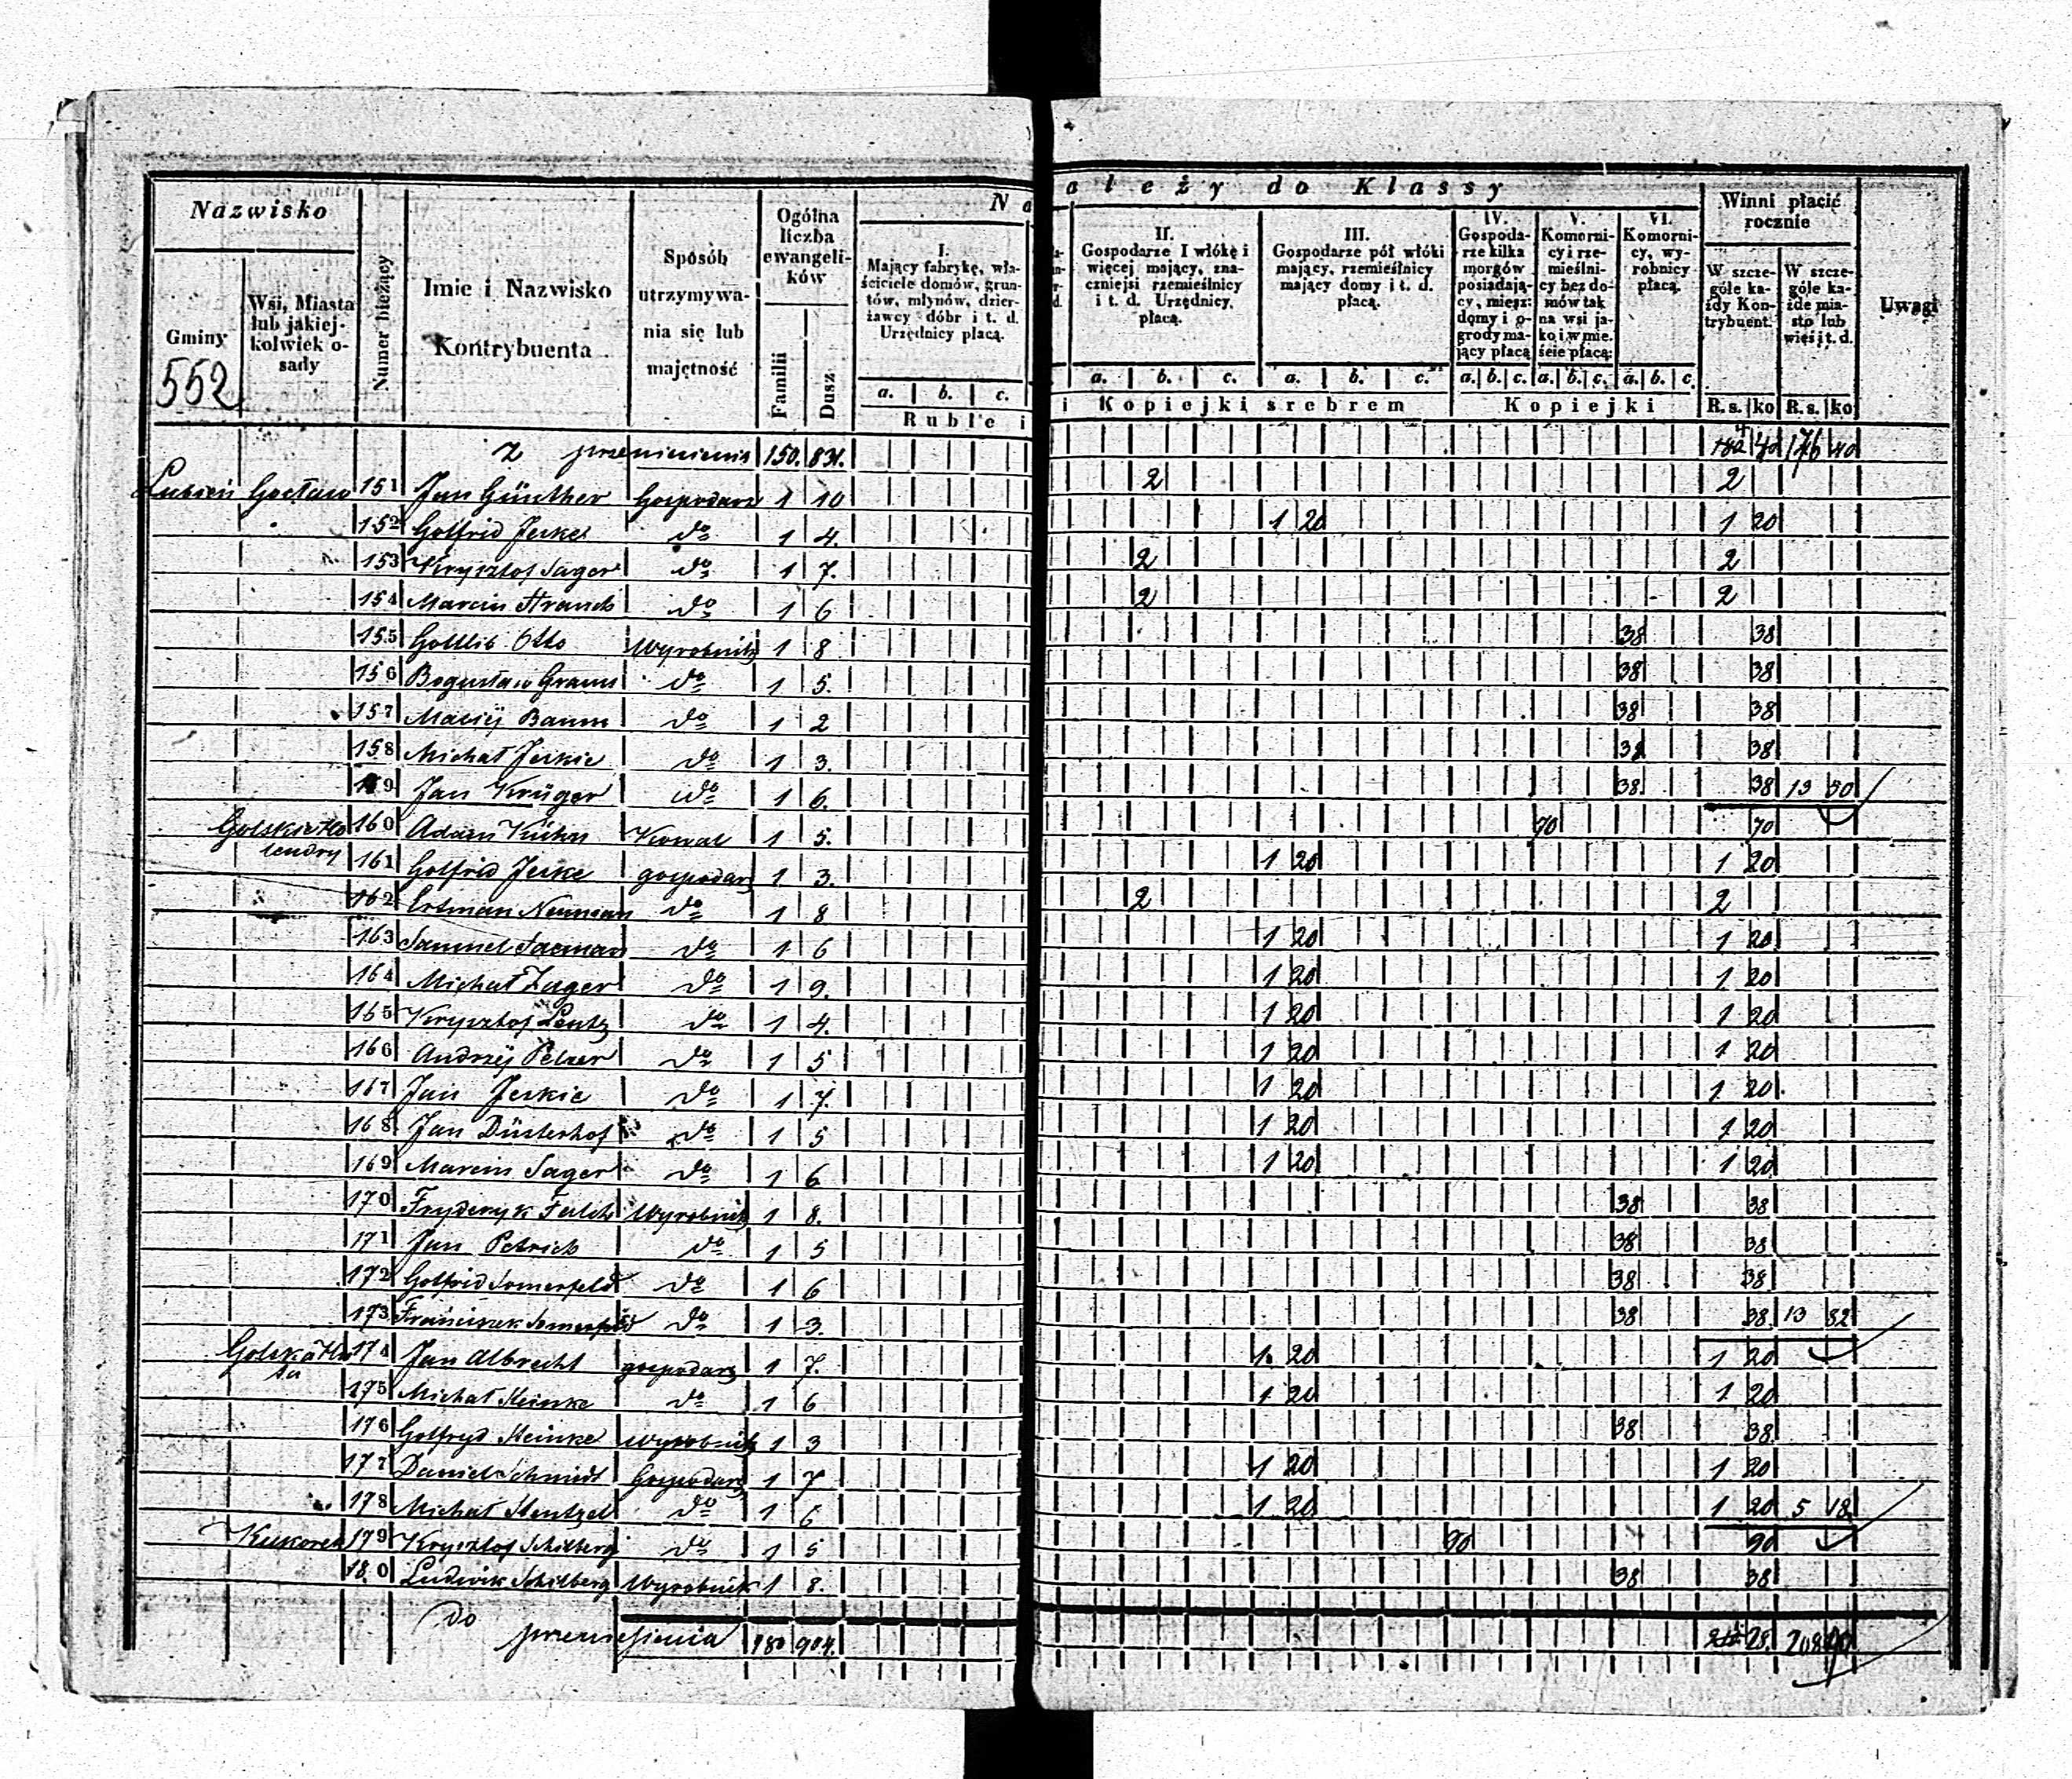 Nazwisko
Należy do Klassy
Gminy
552
Wsi, Miasta lub jakiej-kolwiek o-sady
Numer bieżący
Imie i Nazwisko Kontrybuenta
Sposób utrzymywa-nia się lub majętność
Ogólna liczba ewangeli-ków
Familii
Dusz
I. Mający fabrykę, wła-ściciele domów, grun-tów, młynów, dzier-żawcy dóbr i t. d. Urzędnicy płacą.
II. Gospodarze I włókę i więcej mający, zna-czniejsi rzemieślnicy i t. d. Urzędnicy, płacą.
III. Gospodarze pół włóki mający, rzemieślnicy mający domy i t. d. płacą.
IV. Gospoda-rze kilka morgów posiadają-cy, miesz: domy i o-grody ma-jący płacą
V. Komorni-cy i rze-mieślni-cy bez do-mów tak na wsi ja-ko i w mie-ście płacą:
VI. Komorni-cy, wy-robnicy płacą.
Winni płacić rocznie
W szcze-góle ka-żdy Kon-trybuent.
W szcze-góle ka-żde mia-sto lub wieś i t. d.
Uwagi
a. b. c. a. b. c. a. b. c. a. b. c. a. b. c. a. b. c.
Ruble i Kopiejki srebrem Kopiejki R.s. ko R.s. ko
z przeniesienia 150. 831. 40 176 40
Lubień Gocław 151 Jan Günther Gospodarz 1 10 2 2
152 Gotfrid Jeske do 1 4. 1 20 1 20
153 Krysztof Sager do 1 7. 2 2
154 Marcin Strauch do 1 6 2 2
155 Gottlib Otto Wyrobnik 1 8 38 38
156 Bogusław Graus do 1 5. 38 38
157 Maciÿ Baum do 1 2 38 38
158 Michał Jeskie do 1 3. 38 38
159 Jan Krüger do 1 6. 38 38
Golskie Ho lendry 160 Adam Kühn Kowal 1 5. 70 70
161 Gotfrid Jeske gospodarz 1 3. 1 20 1 20
162 Ertman Neuman do 1 8 2 2
163 Samuel do 1 6 1 20 1 20
164 Michał Zager do 1 9. 1 20 1 20
165 Krysztof Lentz do 1 4. 1 20 1 20
166 Andrzÿ Pelzer do 1 5 1 20 1 20
167 Jan Jeskie do 1 7. 1 20 1 20
168 Jan Düsterhof do 1 5 1 20 1 20
169 Marcin Sager do 1 6 1 20 1 20
170 Fryderyk Wyrobnik 1 8. 38 38
171 Jan Petrich do 1 5 38 38
172 Gotfrid Somerfeld do 1 6 38 38
173 Franciszek Somerfeld do 1 3. 38 38 13 82
174 Jan Albrecht gospodarz 1 7. 1 20 1 20
175 Michał Steinke do 1 6 1 20 1 20
176 Gotfryd Steinke Wyrobnik 1 3 38 38
177 Daniel Schmidt Gospodarz 1 7 1 20 1 20
178 Michał Stentzel do 1 6 1 20 1 20 5 18
179 Krysztof Schilberg do 1 5 90 90
180 Ludwik Schilberg Wyrobnik 1 8. 38 38
Do przeniesienia 180 28.